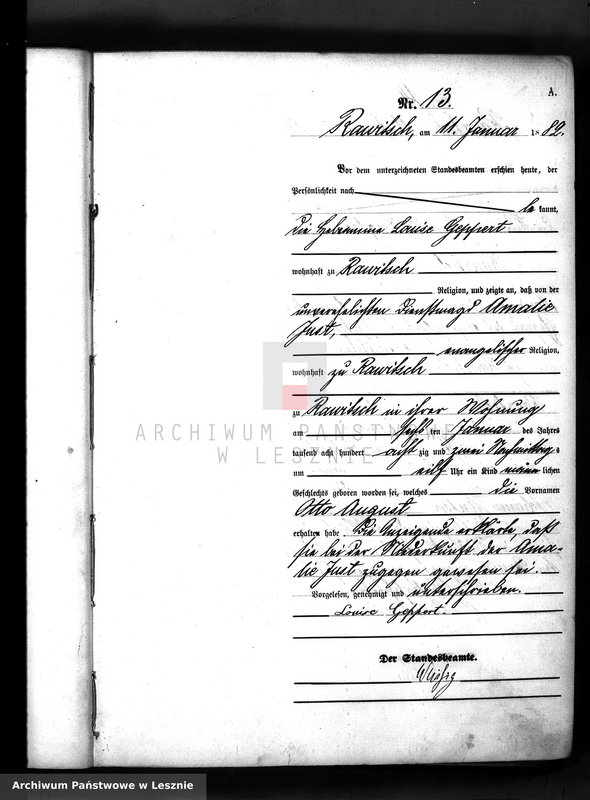 A.
Nr. 13.
Rawitsch, am 11. Januar 1882.
Vor dem unterzeichneten Standesbeamten erschien heute, der
Persönlichkeit nach
bekannt,
die Hebeamme Louise Geppert
wohnhaft zu Rawitsch
Religion, und zeigte an, daß von der
unverehelichten Dienstmagd Amalie
Just,
evangelischer Religion,
wohnhaft zu Rawitsch
zu Rawitsch in ihrer Wohnung
am sechsten Januar des Jahres
tausend acht hundert achtzig und zwei Nachmittags
um eilf Uhr ein Kind männlichen
Geschlechts geboren worden sei, welches die Vornamen
Otto August
erhalten habe. Die Anzeigende erklärte, daß
sie bei der Niederkunft der Ama-
lie Just zugegen gewesen sei.
Vorgelesen, genehmigt und unterschrieben.
Louise Geppert.
Der Standesbeamte.
ARCHIWUM PAŃSTWOWE
W LESZNIE
Archiwum Państwowe w Lesznie